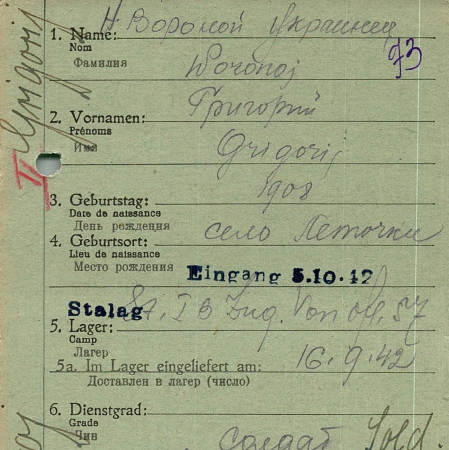 Н Вороной украинец
1. Name:
Nom
Фамилия
Woronoj
73
Григорий
2. Vornamen:
Prénoms
Имя
Grigorij
1908
3. Geburtstag:
Date de naissance
День рождения
4. Geburtsort:
село
Lieu de naissance
Место рождения
Eingang 5.10.42
Stalag
St. I B
5. Lager:
Camp
Лагерь
16.9.42
5a. Im Lager eingeliefert am:
Доставлен в лагерь (число)
6. Dienstgrad:
Grade
Чин
солдат Sold.
II